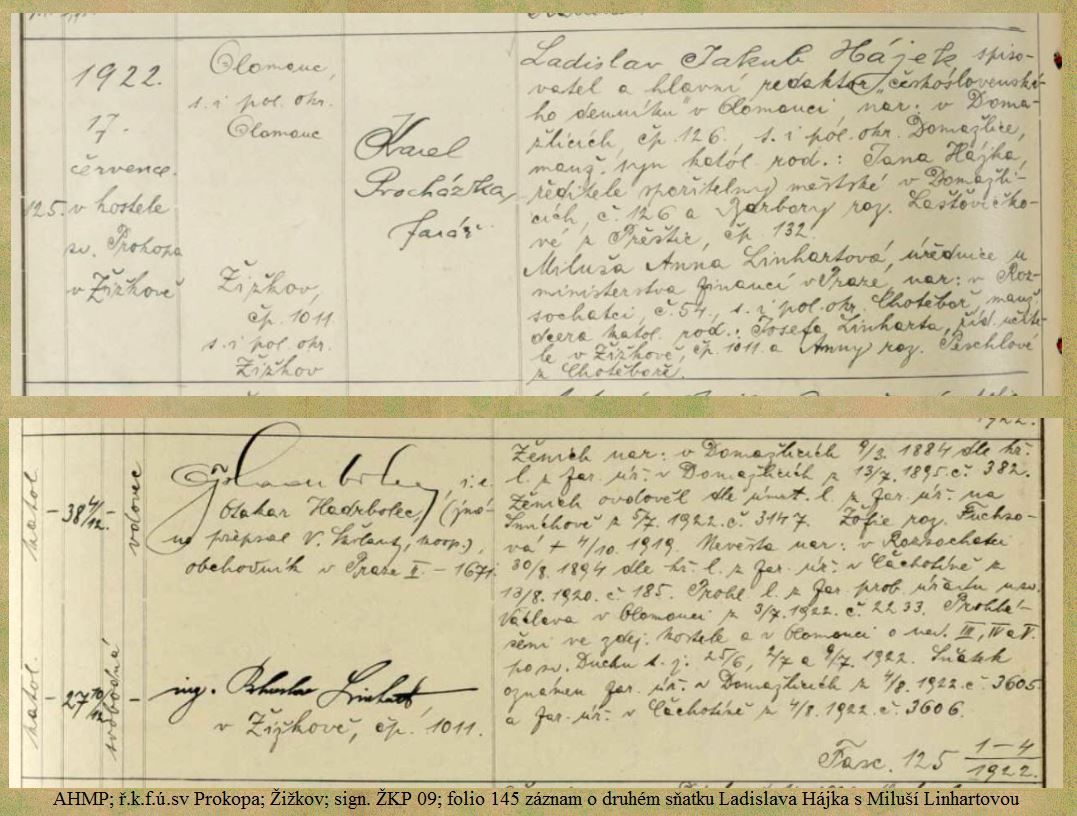 1922.
17.
července.
125. v kostele
sv. Prokopa
v Žižkově
Olomouc,
s. i pol. okr.
Olomouc
Žižkov,
čp. 1011
s. i pol. okr.
Žižkov
Karel
Procházka,
farář
Ladislav Jakub Hájek, spiso-
vatel a hlavní redaktor „československé-
ho denníku" v Olomouci, nar: v Doma-
žlicích, čp. 126. s. i pol. okr. Domažlice,
manž. syn katol. rod.: Jana Hájka,
ředitele spořitelny městské v Domažli-
cích, č. 126 a Barbory roz. Laštovičko-
vé z Přeštic, čp. 132.
Miluša Anna Linhartová, úřednice u
ministerstva financí v Praze, nar: v Roz-
sochatci, č. 54, s. i pol. okr. Chotěboř, manž.
dcera katol. rod.: Josefa Linharta, říd. učite-
le v Žižkově, čp. 1011. a Anny roz. Peschlové
z Chotěboře.
1922.
katol.
- 38 4/12. -
vdovec
i. e.
Otakar Hadrbolec, (jmé-
no přepsal V. koop.),
obchodník v Praze II. - 1671.
katol.
- 27 10/12 -
svobodná
ing. Linhart,
v Žižkově, čp. 1011.
Ženich nar: v Domažlicích 9/3. 1884 dle kř.
l. z far. úř. v Domažlicích z 13/7. 1895. č. 382.
Ženich ovdověl dle úmrt. l. z far. úř. na
Smíchově z 5/7. 1922. č. 3147. Žofie roz. Fuchso-
vá + 4/10. 1919. Nevěsta nar: v Rozsochatci
30/8. 1894 dle kř. l. z far. úř. v Čachotíně z
13/8. 1920. č. 185. Prohl. l. z far. prob. úřadu u sv.
Václava v Olomouci z 3/7. 1922. č. 2233. Prohlá-
šeni ve zdej. kostele a v Olomouci o ned. III, IV a V.
po sv. Duchu t. j. 25/6, 2/7 a 9/7. 1922. Sňatek
oznámen far. úř. v Domažlicích z 4/8. 1922. č. 3605
a far. úř. v Čachotíně z 4/8. 1922. č. 3606.
Fasc. 125 1-4/1922.
AHMP; ř.k.f.ú.sv Prokopa; Žižkov; sign. ŽKP 09; folio 145 záznam o druhém sňatku Ladislava Hájka s Miluší Linhartovou